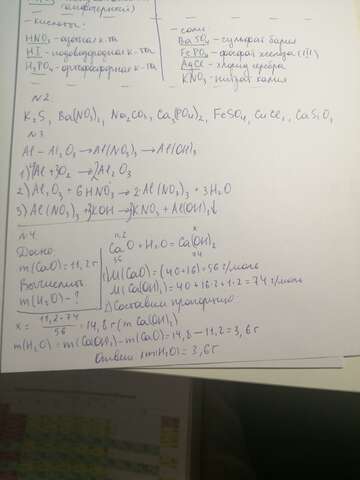 - кислоты:
HNO₃ - азотная к-та
HI - иодоводородная к-та
H₃PO₄ - ортофосфорная к-та
- соли
BaSO₄ - сульфат бария
FePO₄ - фосфат железа (III)
AgCl - хлорид серебра
KNO₃ - нитрат калия
№2.
K₂S, Ba(NO₃)₂, Na₂CO₃, Ca₃(PO₄)₂, FeSO₄, CuCl₂, CaSiO₃
№3
Al - Al₂O₃ → Al(NO₃)₃ → Al(OH)₃
1) 4Al + 3O₂ → 2Al₂O₃
2) Al₂O₃ + 6HNO₃ → 2Al(NO₃)₃ + 3H₂O
3) Al(NO₃)₃ + 3KOH → 3KNO₃ + Al(OH)₃↓
№4
Дано
m(CaO) = 11,2 г
Вычислить
m(H₂O) - ?
11,2 x
CaO + H₂O = Ca(OH)₂
56 74
M(CaO) = (40+16) = 56 г/моль
M(Ca(OH)₂) = 40+16·2+1·2 = 74 г/моль
Составим пропорцию
x = 11,2·74 / 56 = 14,8 г (m Ca(OH)₂)
m(H₂O) = m(Ca(OH)₂) - m(CaO) = 14,8 - 11,2 = 3,6 г
Ответ: m(H₂O) = 3,6 г